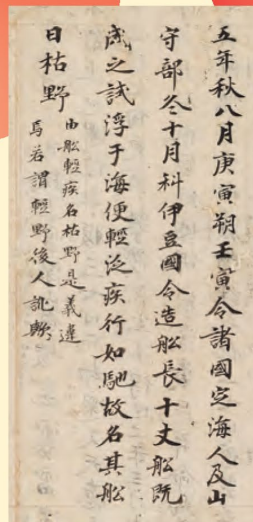 五年秋八月庚寅朔壬寅令諸國定海人及山
守部冬十月科伊豆國令造船長十丈船既
成之試浮于海便輕泛疾行如馳故名其船
曰枯野
由船輕疾名枯野是義違
焉若謂輕野後人訛歟